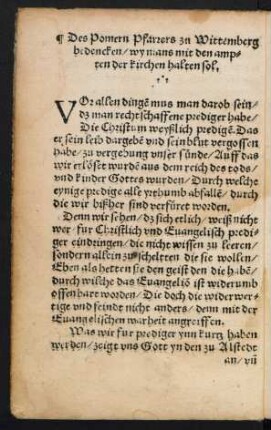 ¶ Des Pomern Pfarrers zu Wittemberg
bedencken / wy mans mit den emp-
ten der kirchen halten sol.
VOr allen dingē mus man darob sein /
dz man rechtschaffene prediger habe /
Die Christum weyslich predigē. Das
er sein leib dargebē und sein blut vergossen
habe / zu vergebung unser sünde / Auff das
wir erlöset wurdē aus dem reich des tods /
und kinder Gottes wurden / Durch welche
eynige predige alle yrthumb abfallē / durch
die wir bißher sind verfüret worden.
Denn wir sehen / dz sich etlich / weiß nicht
wer / fur Christlich und Euangelisch predi-
ger eindringen / die nicht wissen zu leeren /
sondern allein zu schelten die sie wollen /
Eben als hetten sie den geist den die habē /
durch wilche das Euangeliō ist widerumb
offenbart worden / Die doch die widerwer-
tige und feindt nicht anders / denn mit der
Euangelischen warheit angreiffen.
Was wir fur prediger ynn kurtz haben
werden / zeigt uns Gott yn den zu Alstedt
an / uñ